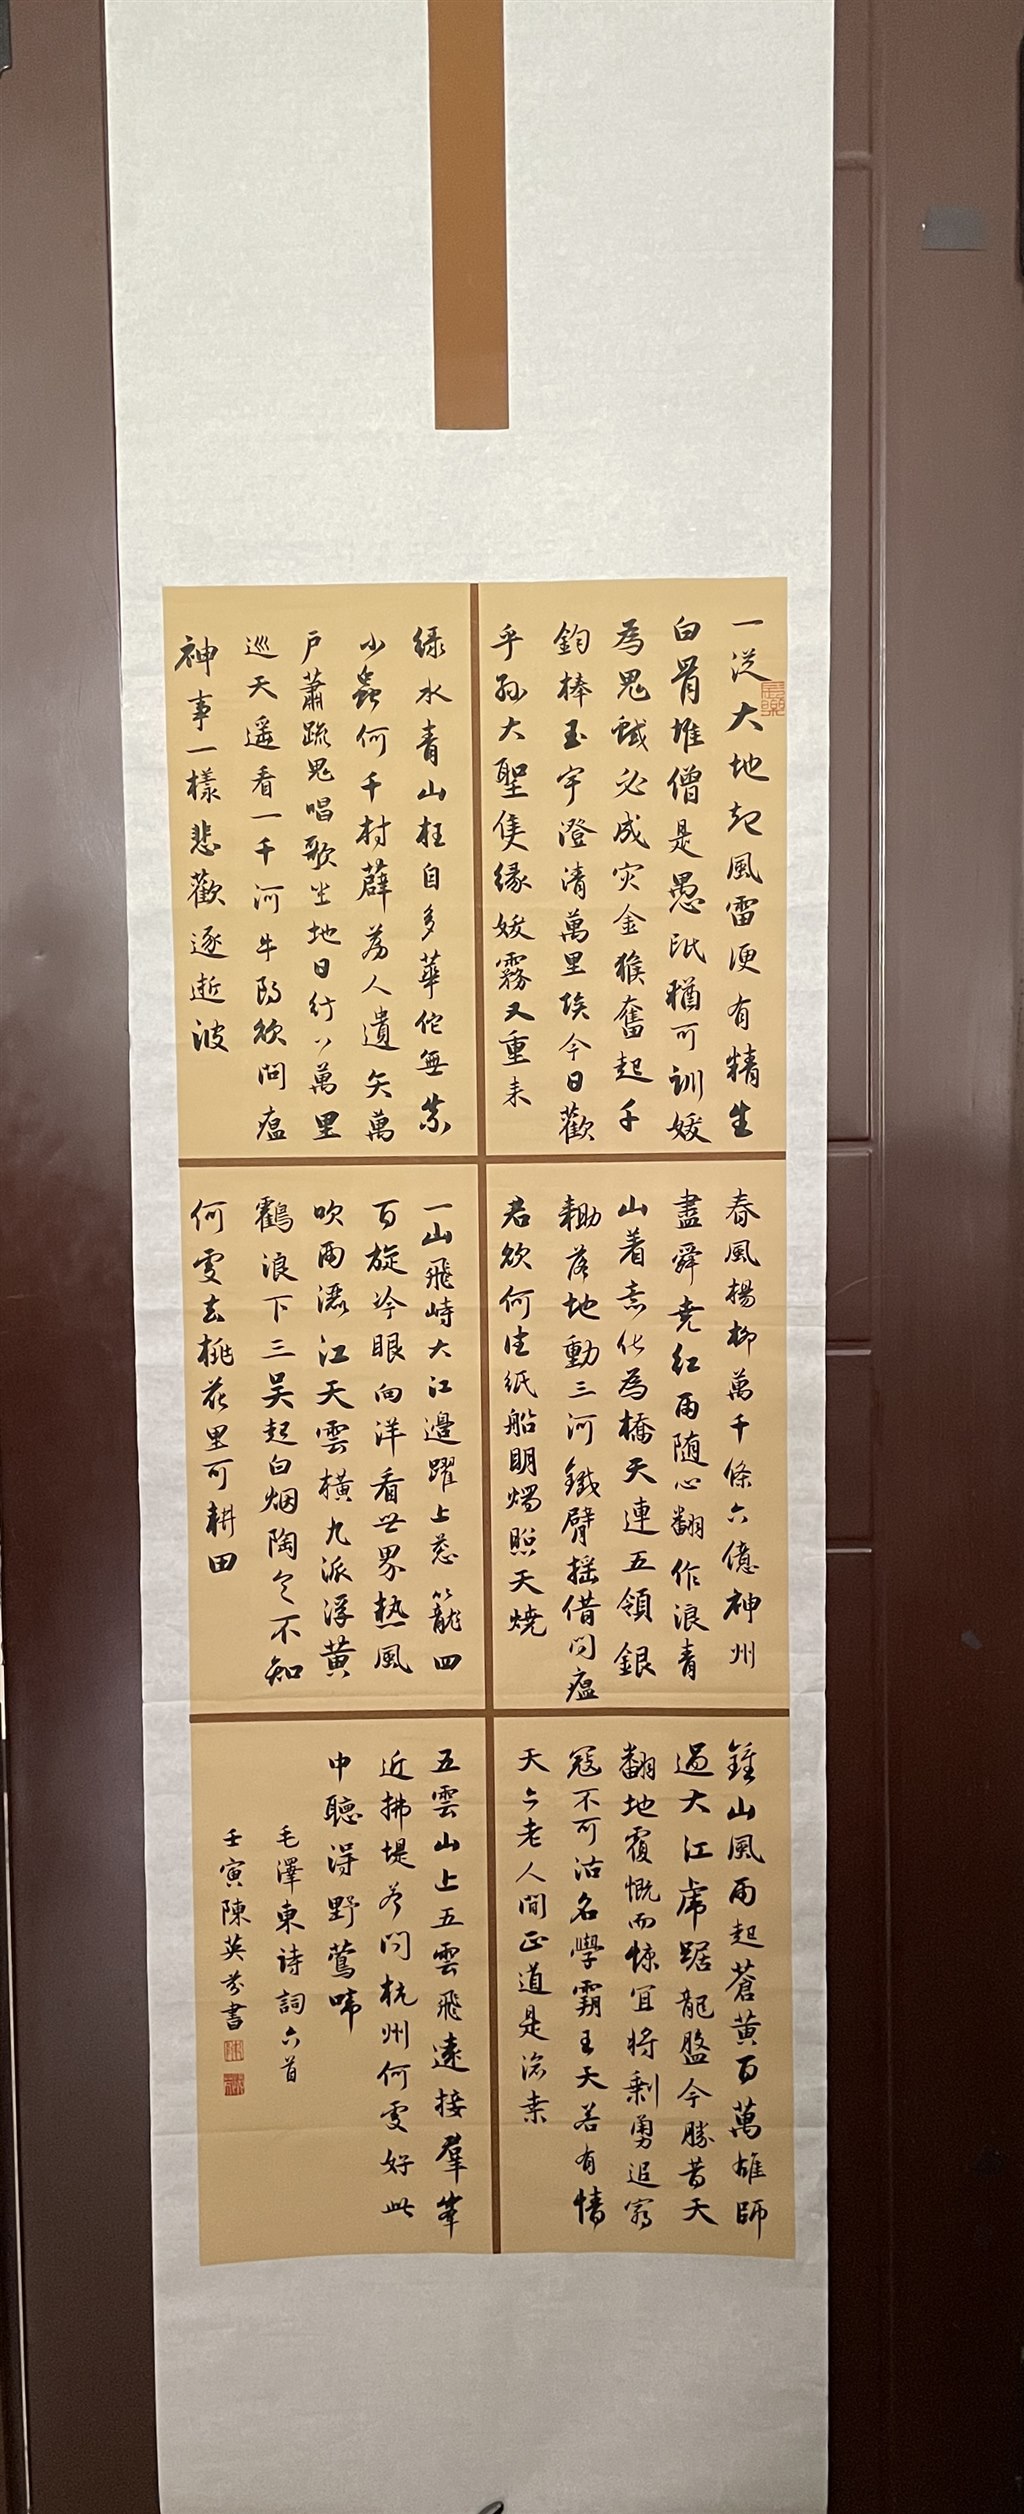 一從大地起風雷便有精生
白骨堆僧是愚氓猶可訓妖
為鬼蜮必成灾金猴奮起千
鈞棒玉宇澄清萬里埃今日歡
乎孫大聖隻緣妖霧又重来
绿水青山枉自多華佗無奈
小蟲何千村薜荔人遺矢萬
户蕭疏鬼唱歌坐地日行八萬里
巡天遥看一千河牛郎欲問瘟
神事一樣悲歡逐逝波
春風楊柳萬千條六億神州
盡舜堯紅雨随心翻作浪青
山着意化為橋天連五領銀
鋤落地動三河鐵臂摇借問瘟
君欲何往紙船明燭照天燒
一山飛峙大江邊躍上葱蘢四
百旋冷眼向洋看世界熱風
吹雨灑江天雲橫九派浮黄
鶴浪下三吴起白烟陶令不知
何處去桃花里可耕田
鍾山風雨起蒼黄百萬雄師
過大江虎踞龍盤今勝昔天
翻地覆慨而慷宜將剩勇追窮
寇不可沽名學霸王天若有情
天亦老人間正道是滄桑
五雲山上五雲飛遠接羣峯
近拂堤若問杭州何處好此
中聽得野鶯啼
毛澤東诗詞六首
壬寅陳英芬書